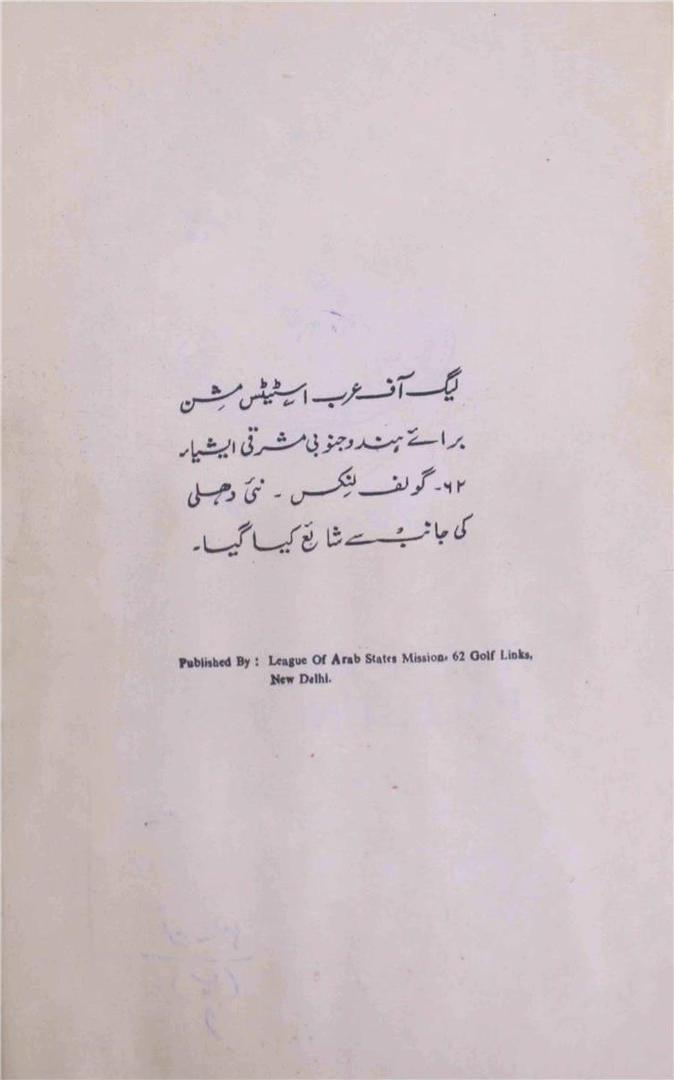 لیگ آف عرب اسٹیٹس مشن
برائے ہند و جنوبی مشرقی ایشیاء
۶۲- گولف لنکس - نئی دھلی
کی جانب سے شائع کیا گیا-
Published By : League Of Arab States Mission, 62 Golf Links,
New Delhi.